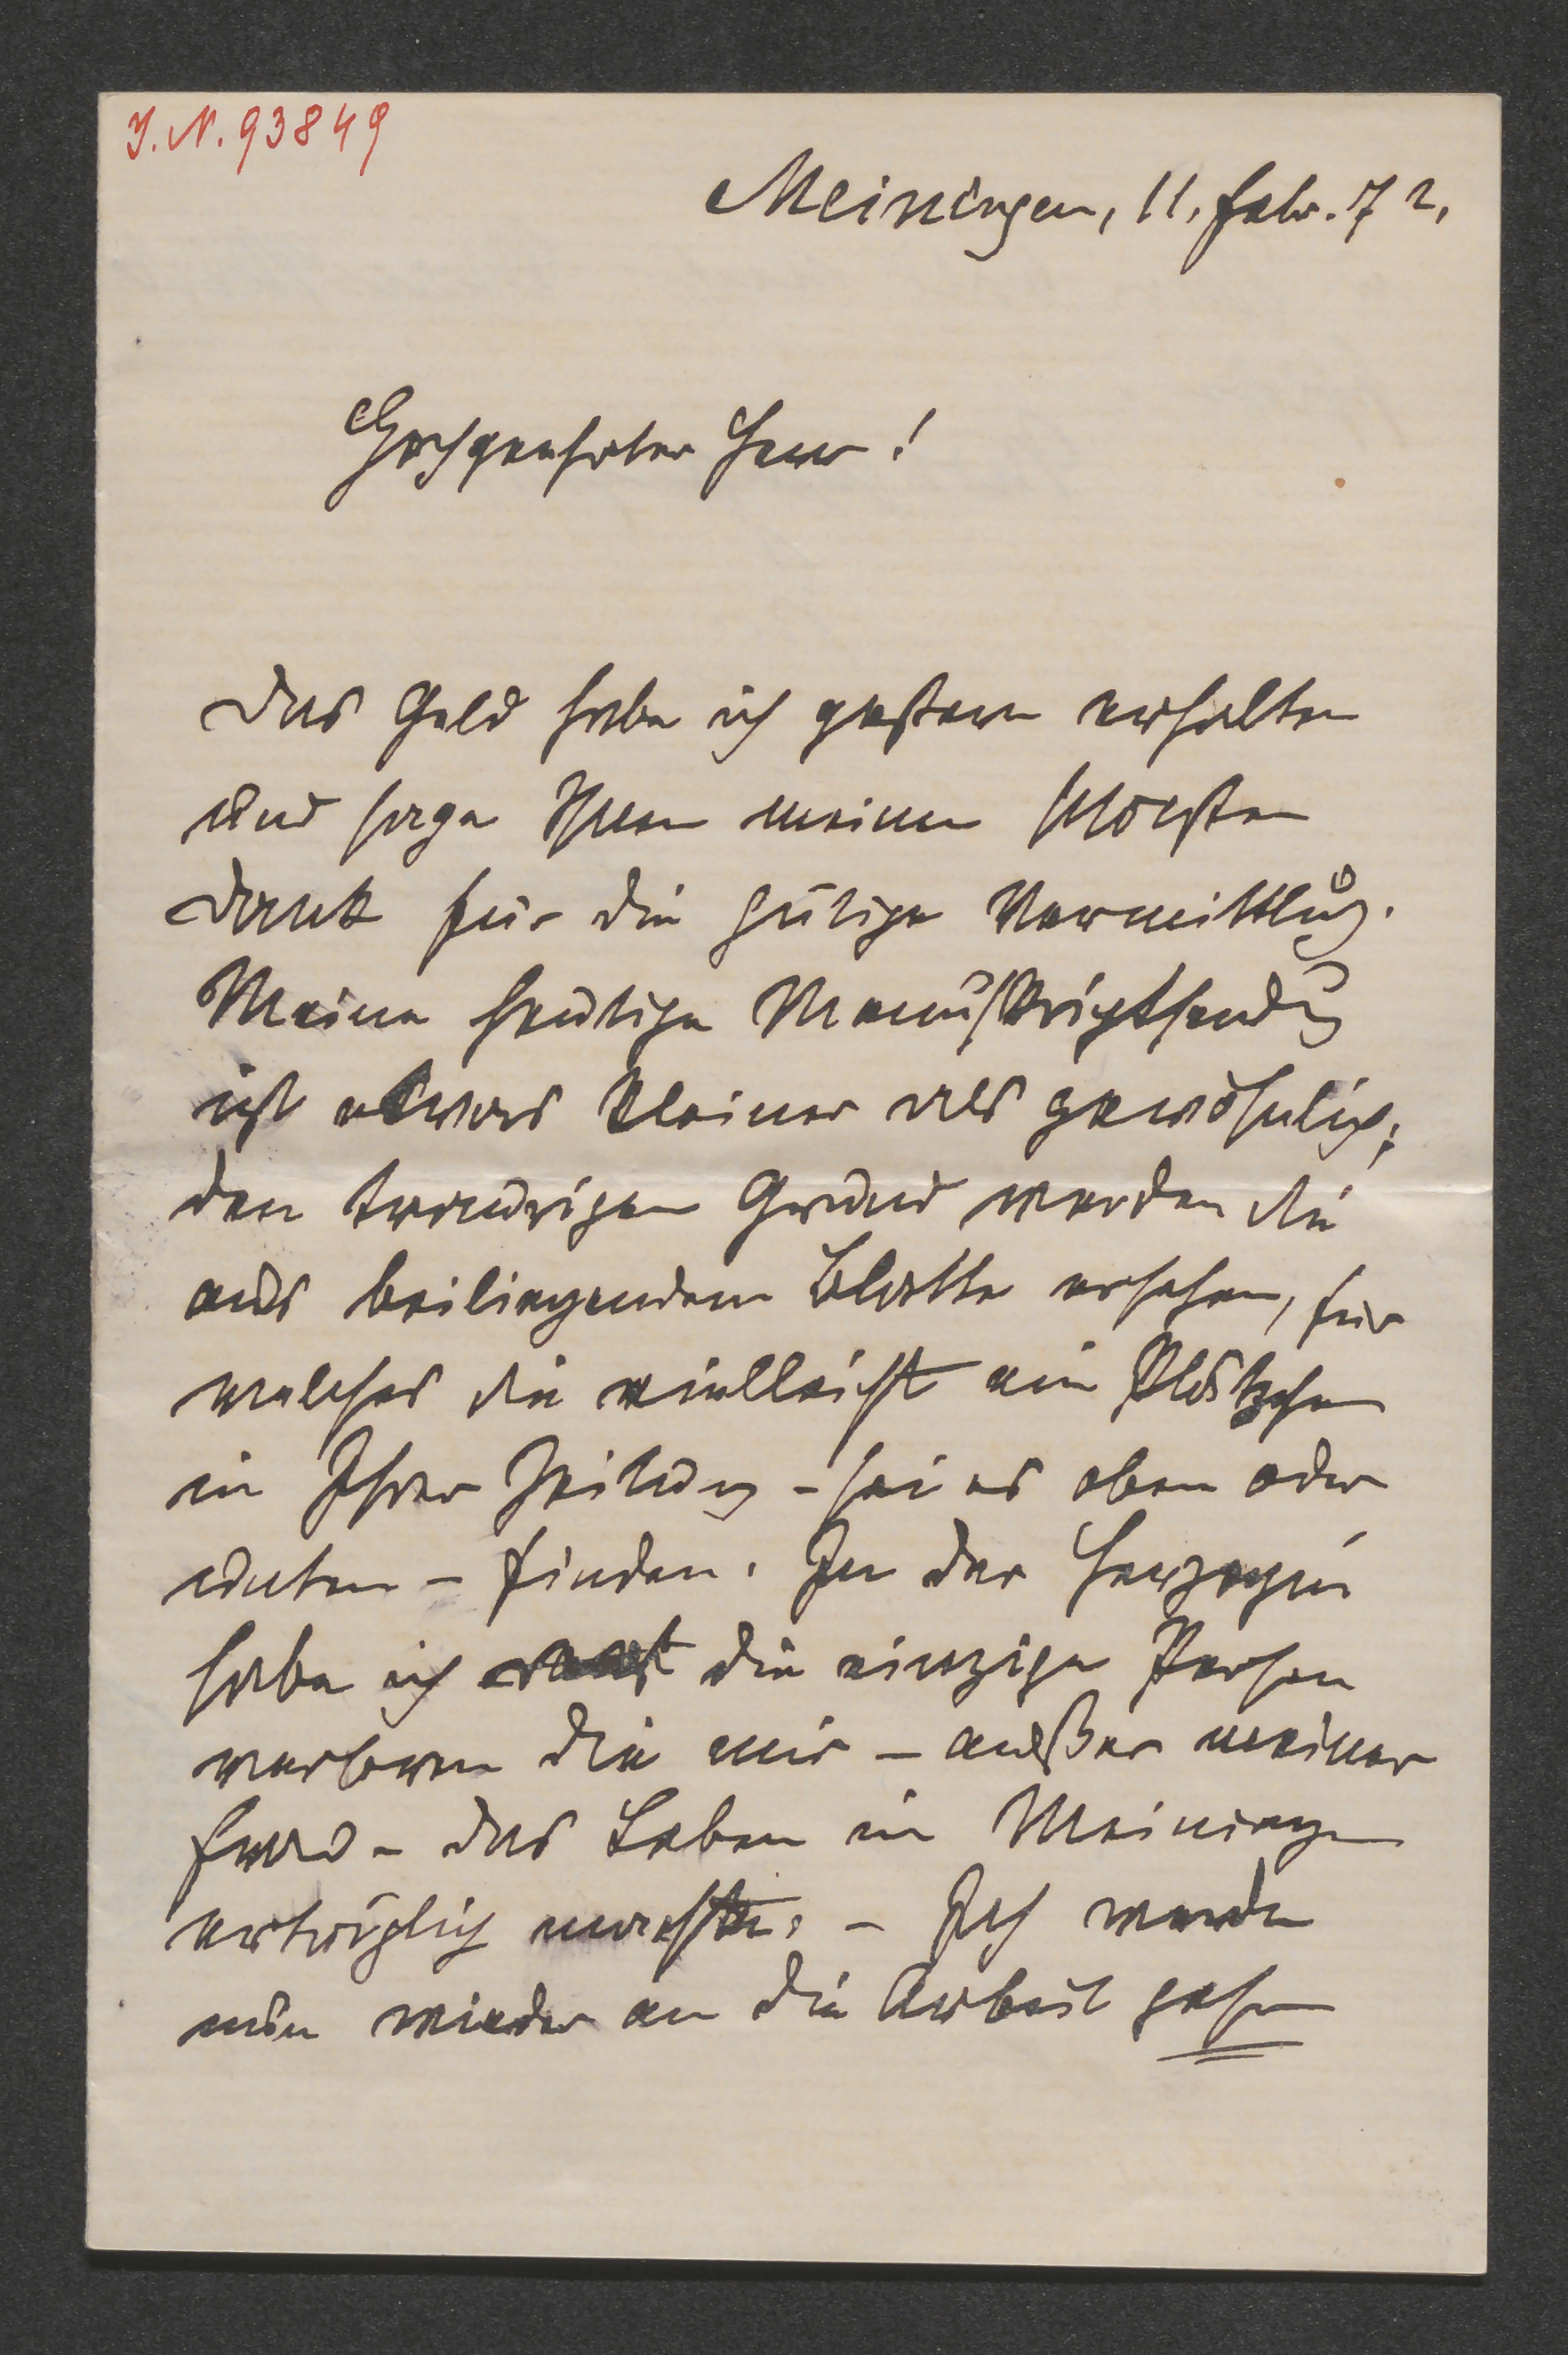 J.N. 93849
Meiningen, 11. Febr. 72.
Hochgeehrter Herr!
Das Geld habe ich gestern erhalten
und sage Ihnen meinen
Dank für die gütige Vermittlung.
Meine heutige Manuskriptsendung
ist etwas kleiner als gewöhnlich;
den traurigen Grund werden Sie
aus beiliegendem Blatte ersehen, für
welches Sie vielleicht ein Plätzchen
in Ihrer Zeitung – sei es oben oder
unten – finden. In der Herzogin
habe ich die einzige Person
verloren die mir – außer meiner
Frau – das Leben in Meiningen
erträglich machte. – Ich werde
nun wieder an die Arbeit gehen